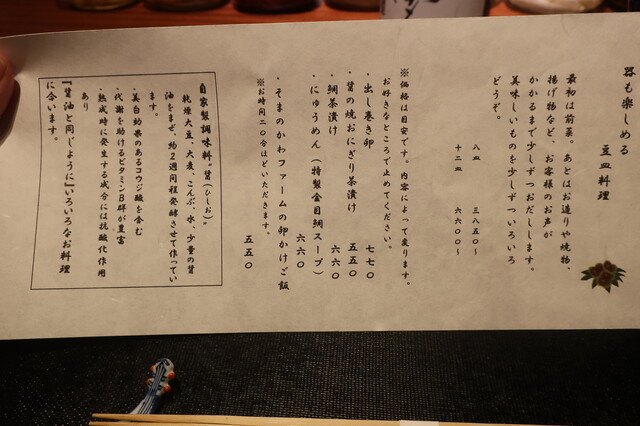 器も楽しめる
豆皿料理
最初は前菜。あとはお造りや焼物、
揚げ物など、お客様のお声が
かかるまで少しずつおだしします。
美味しいものを少しずついろいろ
どうぞ。
八皿 三八五〇〜
十二皿 六六〇〇〜
※価格は目安です。内容によって変ります。
お好きなところで止めてください。
・出し巻き卵 七七〇
・醤の焼おにぎり茶漬け 五五〇
・鯛茶漬け 六六〇
・にゅうめん（特製金目鯛スープ） 六六〇
・そまのかわファームの卵かけご飯 五五〇
※お時間二〇分ほどいただきます。
自家製調味料“醤（ひしお）”
乾燥大豆、大麦、こんぶ、水、少量の醤
油をまぜ、約２週間程発酵させて作ってい
ます。
・美白効果のあるコウジ酸を含む
・代謝を助けるビタミンＢ群が豊富
・熟成時に発生する成分には抗酸化作用
あり
『醤油と同じように』いろいろなお料理
に合います。